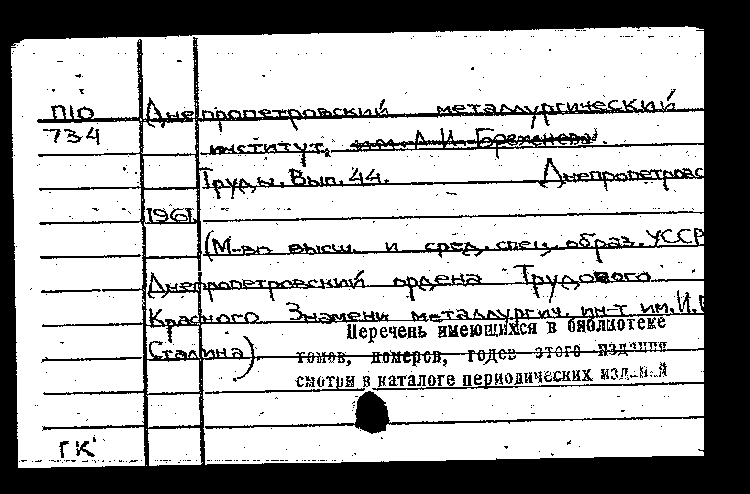 П10 Днепропетровский металлургический
734
институт, им. Л.И. Брежнева.
Труды. Вып. 44. Днепропетровс
1961.
(М-во высш. и сред. спец. образ. УССР
Днепропетровский ордена Трудового
Красного Знамени металлургич. ин-т им. И.
Перечень имеющихся в библиотеке
Сталина). томов, номеров, годов этого издания
смотри в каталоге периодических изданий
ГК